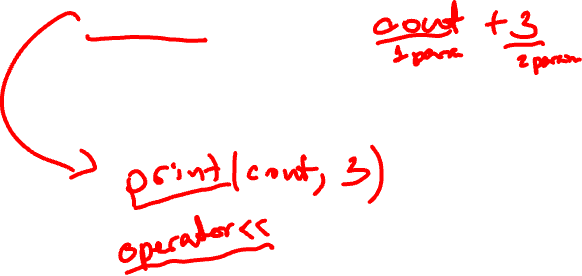 cout + 3
1 param 2 param
print(cout, 3)
operator<<